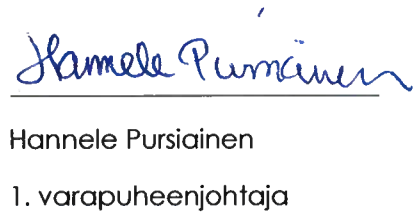 Hannele Pursiainen
Hannele Pursiainen
1. varapuheenjohtaja